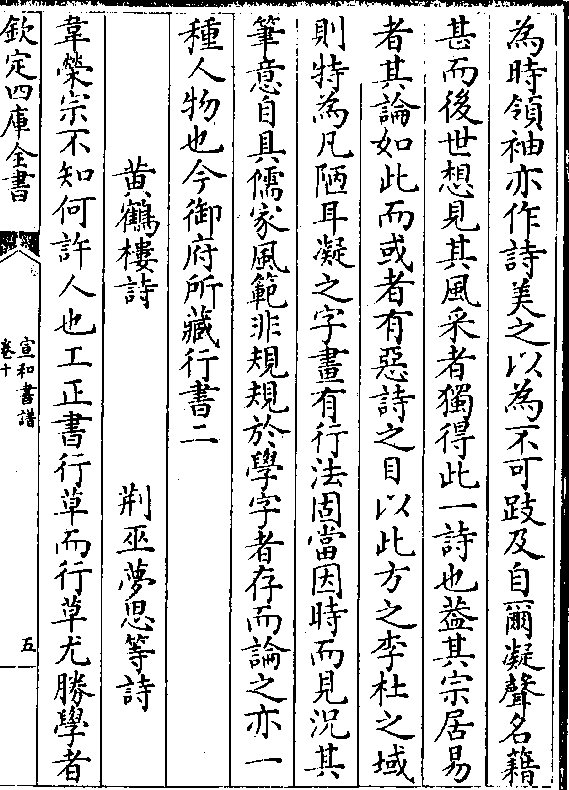 為時領袖亦作詩美之以為不可跂及自爾凝聲名藉
甚而後世想見其風采者獨得此一詩也葢其宗居易
者其論如此而或者有惡詩之目以此方之李杜之域
則特為凡陋耳凝之字畫有行法固當因時而見況其
筆意自具儒家風範非規規於學字者存而論之亦一
種人物也今御府所藏行書二
黄鶴樓詩　荆巫夢思等詩
韋榮宗不知何許人也工正書行草而行草尤勝學者
欽定四庫全書
宣和書譜
卷十
五